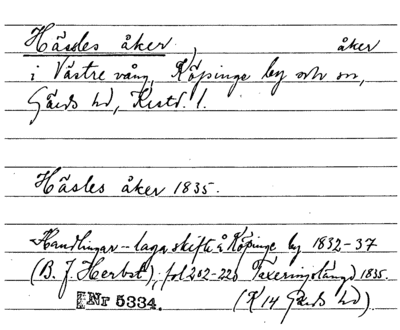 Håsles åker, åker
i Västre vång, Köpinge by och sn,
Gärds hd, Krist. l.
Håsles åker 1835.
Handlingar - laga skifte å Köpinge by 1832-37
(B. J. Herbst), fol 202-220 Taxeringslängd 1835.
Nr 5334. (K 14 Gärds hd).